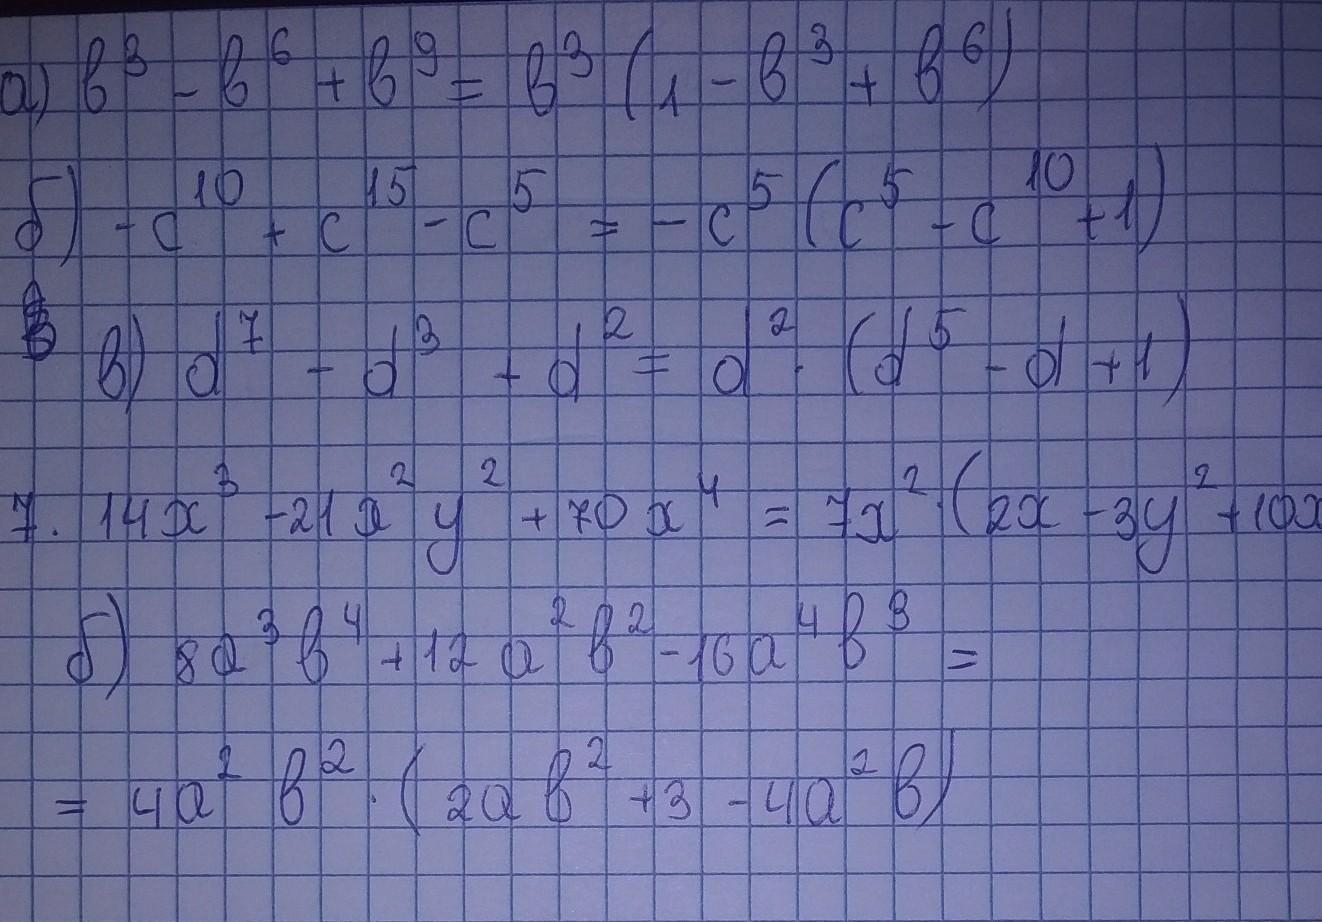 а) в³ - в⁶ + в⁹ = в³ (1 - в³ + в⁶)
б) - c¹⁰ + c¹⁵ - c⁵ = - c⁵ (c⁵ - c¹⁰ + 1)
в) d⁷ - d³ + d² = d² · (d⁵ - d + 1)
7. 14x³ - 21x²y² + 70x⁴ = 7x² · (2x - 3y² + 10x
б) 8a³в⁴ + 12a²в² - 16a⁴в³ =
= 4a²в² · (2aв² + 3 - 4a²в)